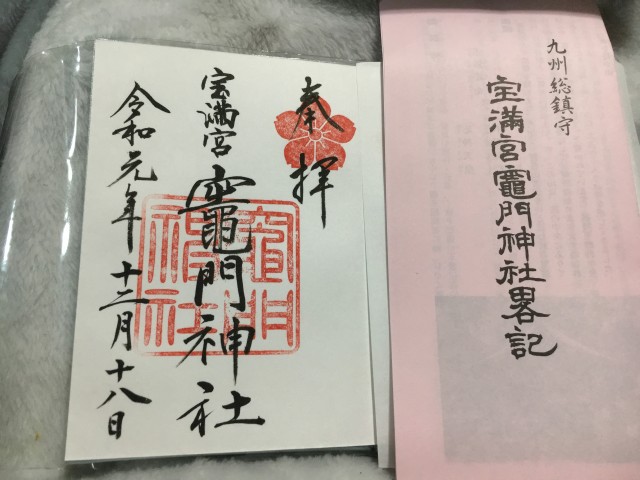 九州総鎮守
宝満宮竈門神社畧記
奉拝
宝満宮
竈門神社
令和元年十二月十八日
竈門
神社